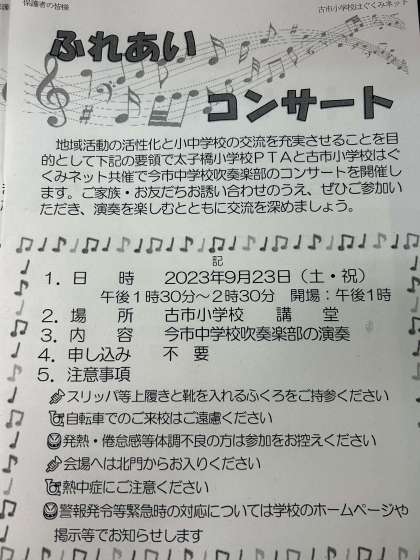 保護者の皆様
古市小学校はぐくみネット
ふれあい
コンサート
地域活動の活性化と小中学校の交流を充実させることを目
的として下記の要領で太子橋小学校ＰＴＡと古市小学校はぐ
くみネット共催で今市中学校吹奏楽部のコンサートを開催し
ます。ご家族・お友だちお誘い合わせのうえ、ぜひご参加い
ただき、演奏を楽しむとともに交流を深めましょう。
記
１．日　時　２０２３年９月２３日（土・祝）
午後１時３０分～２時３０分　開場：午後１時
２．場　所　古市小学校　講　堂
３．内　容　今市中学校吹奏楽部の演奏
４．申し込み　不　要
５．注意事項
スリッパ等上履きと靴を入れるふくろをご持参ください
自転車でのご来校はご遠慮ください
発熱・倦怠感等体調不良の方は参加をお控えください
会場へは北門からお入りください
熱中症にご注意ください
警報発令等緊急時の対応については学校のホームページや
掲示等でお知らせします